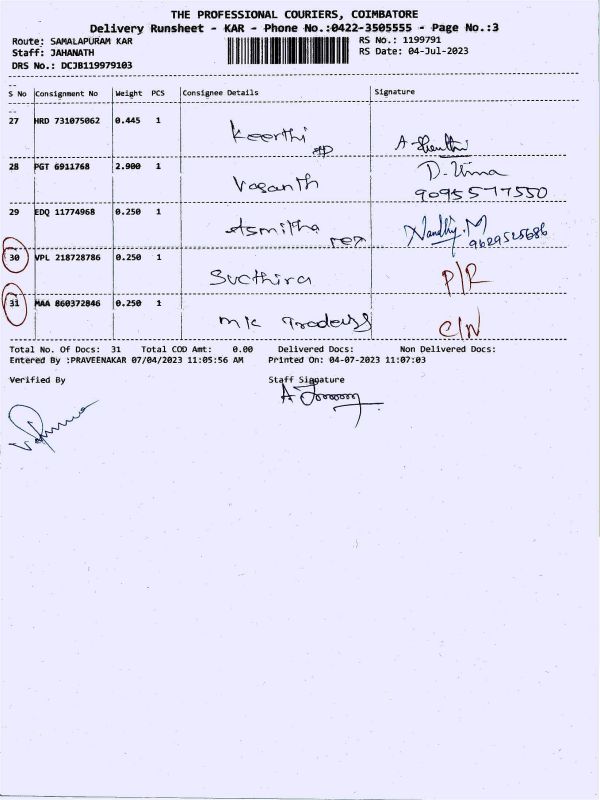 THE PROFESSIONAL COURIERS, COIMBATORE
Delivery Runsheet - KAR - Phone No.:0422-3505555 - Page No.:3
Route: SAMALAPURAM KAR RS No.: 1199791
Staff: JAHANATH RS Date: 04-Jul-2023
DRS No.: DCJB119979103
S No Consignment No Weight PCS Consignee Details Signature
27 HRD 731075062 0.445 1 Keerthi
28 PGT 6911768 2.900 1 Vasanth D. Uma
9095577550
29 EDQ 11774968 0.250 1 Asmitha Nandhy.M
9629525686
30 VPL 218728786 0.250 1 Sucthira P/R
31 MAA 860372846 0.250 1 MK Traders C/N
Total No. Of Docs: 31 Total COD Amt: 0.00 Delivered Docs: Non Delivered Docs:
Entered By :PRAVEENAKAR 07/04/2023 11:05:56 AM Printed On: 04-07-2023 11:07:03
Verified By Staff Signature